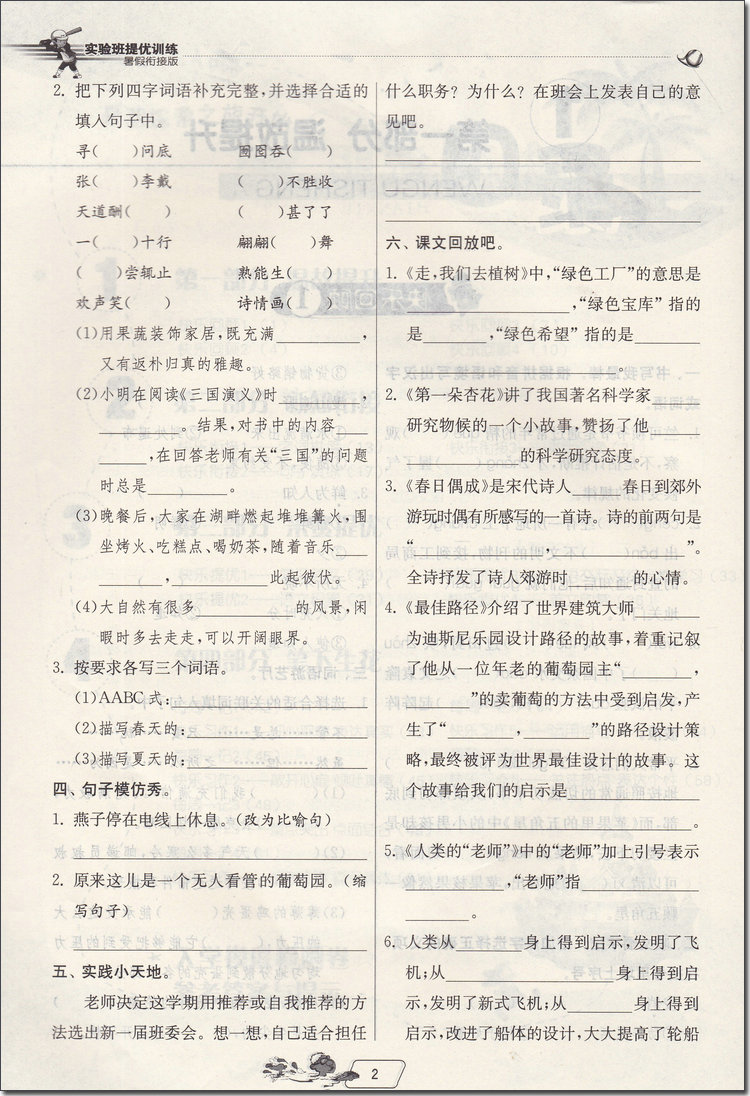 实验班提优训练
暑假衔接版
2. 把下列四字词语补充完整,并选择合适的
填入句子中。
寻(　　)问底　　囫囵吞(　　)
张(　　)李戴　　(　　)不胜收
天道酬(　　)　　(　　)甚了了
一(　　)十行　　翩翩(　　)舞
(　　)尝辄止　　熟能生(　　)
欢声笑(　　)　　诗情画(　　)
(1)用果蔬装饰家居,既充满________,
又有返朴归真的雅趣。
(2)小明在阅读《三国演义》时________,
________。结果,对书中的内容____
____,在回答老师有关“三国”的问题
时总是________。
(3)晚餐后,大家在湖畔燃起堆堆篝火,围
坐烤火、吃糕点、喝奶茶,随着音乐____
____,________此起彼伏。
(4)大自然有很多________的风景,闲
暇时多去走走,可以开阔眼界。
3. 按要求各写三个词语。
(1)AABC式:________
(2)描写春天的:________
(3)描写夏天的:________
四、句子模仿秀。
1. 燕子停在电线上休息。(改为比喻句)
2. 原来这儿是一个无人看管的葡萄园。(缩
写句子)
五、实践小天地。
老师决定这学期用推荐或自我推荐的方
法选出新一届班委会。想一想,自己适合担任
什么职务?为什么?在班会上发表自己的意
见吧。
六、课文回放吧。
1.《走,我们去植树》中,“绿色工厂”的意思是
________,“绿色宝库”指的
是________,“绿色希望”指的是________
________。
2.《第一朵杏花》讲了我国著名科学家____
研究物候的一个小故事,赞扬了他____
________的科学研究态度。
3.《春日偶成》是宋代诗人____春日到郊外
游玩时偶有所感写的一首诗。诗的前两句是
“________,________”。
全诗抒发了诗人郊游时________的心情。
4.《最佳路径》介绍了世界建筑大师________
为迪斯尼乐园设计路径的故事,着重记叙
了他从一位年老的葡萄园主“________,
________”的卖葡萄的方法中受到启发,产
生了“________,________”的路径设计策
略,最终被评为世界最佳设计的故事。这
个故事给我们的启示是________
________。
5.《人类的“老师”》中的“老师”加上引号表示
________,“老师”指________
________。
6. 人类从________身上得到启示,发明了飞
机;从________身上得到启
示,发明了新式飞机;从________身上得到
启示,改进了船体的设计,大大提高了轮船
2